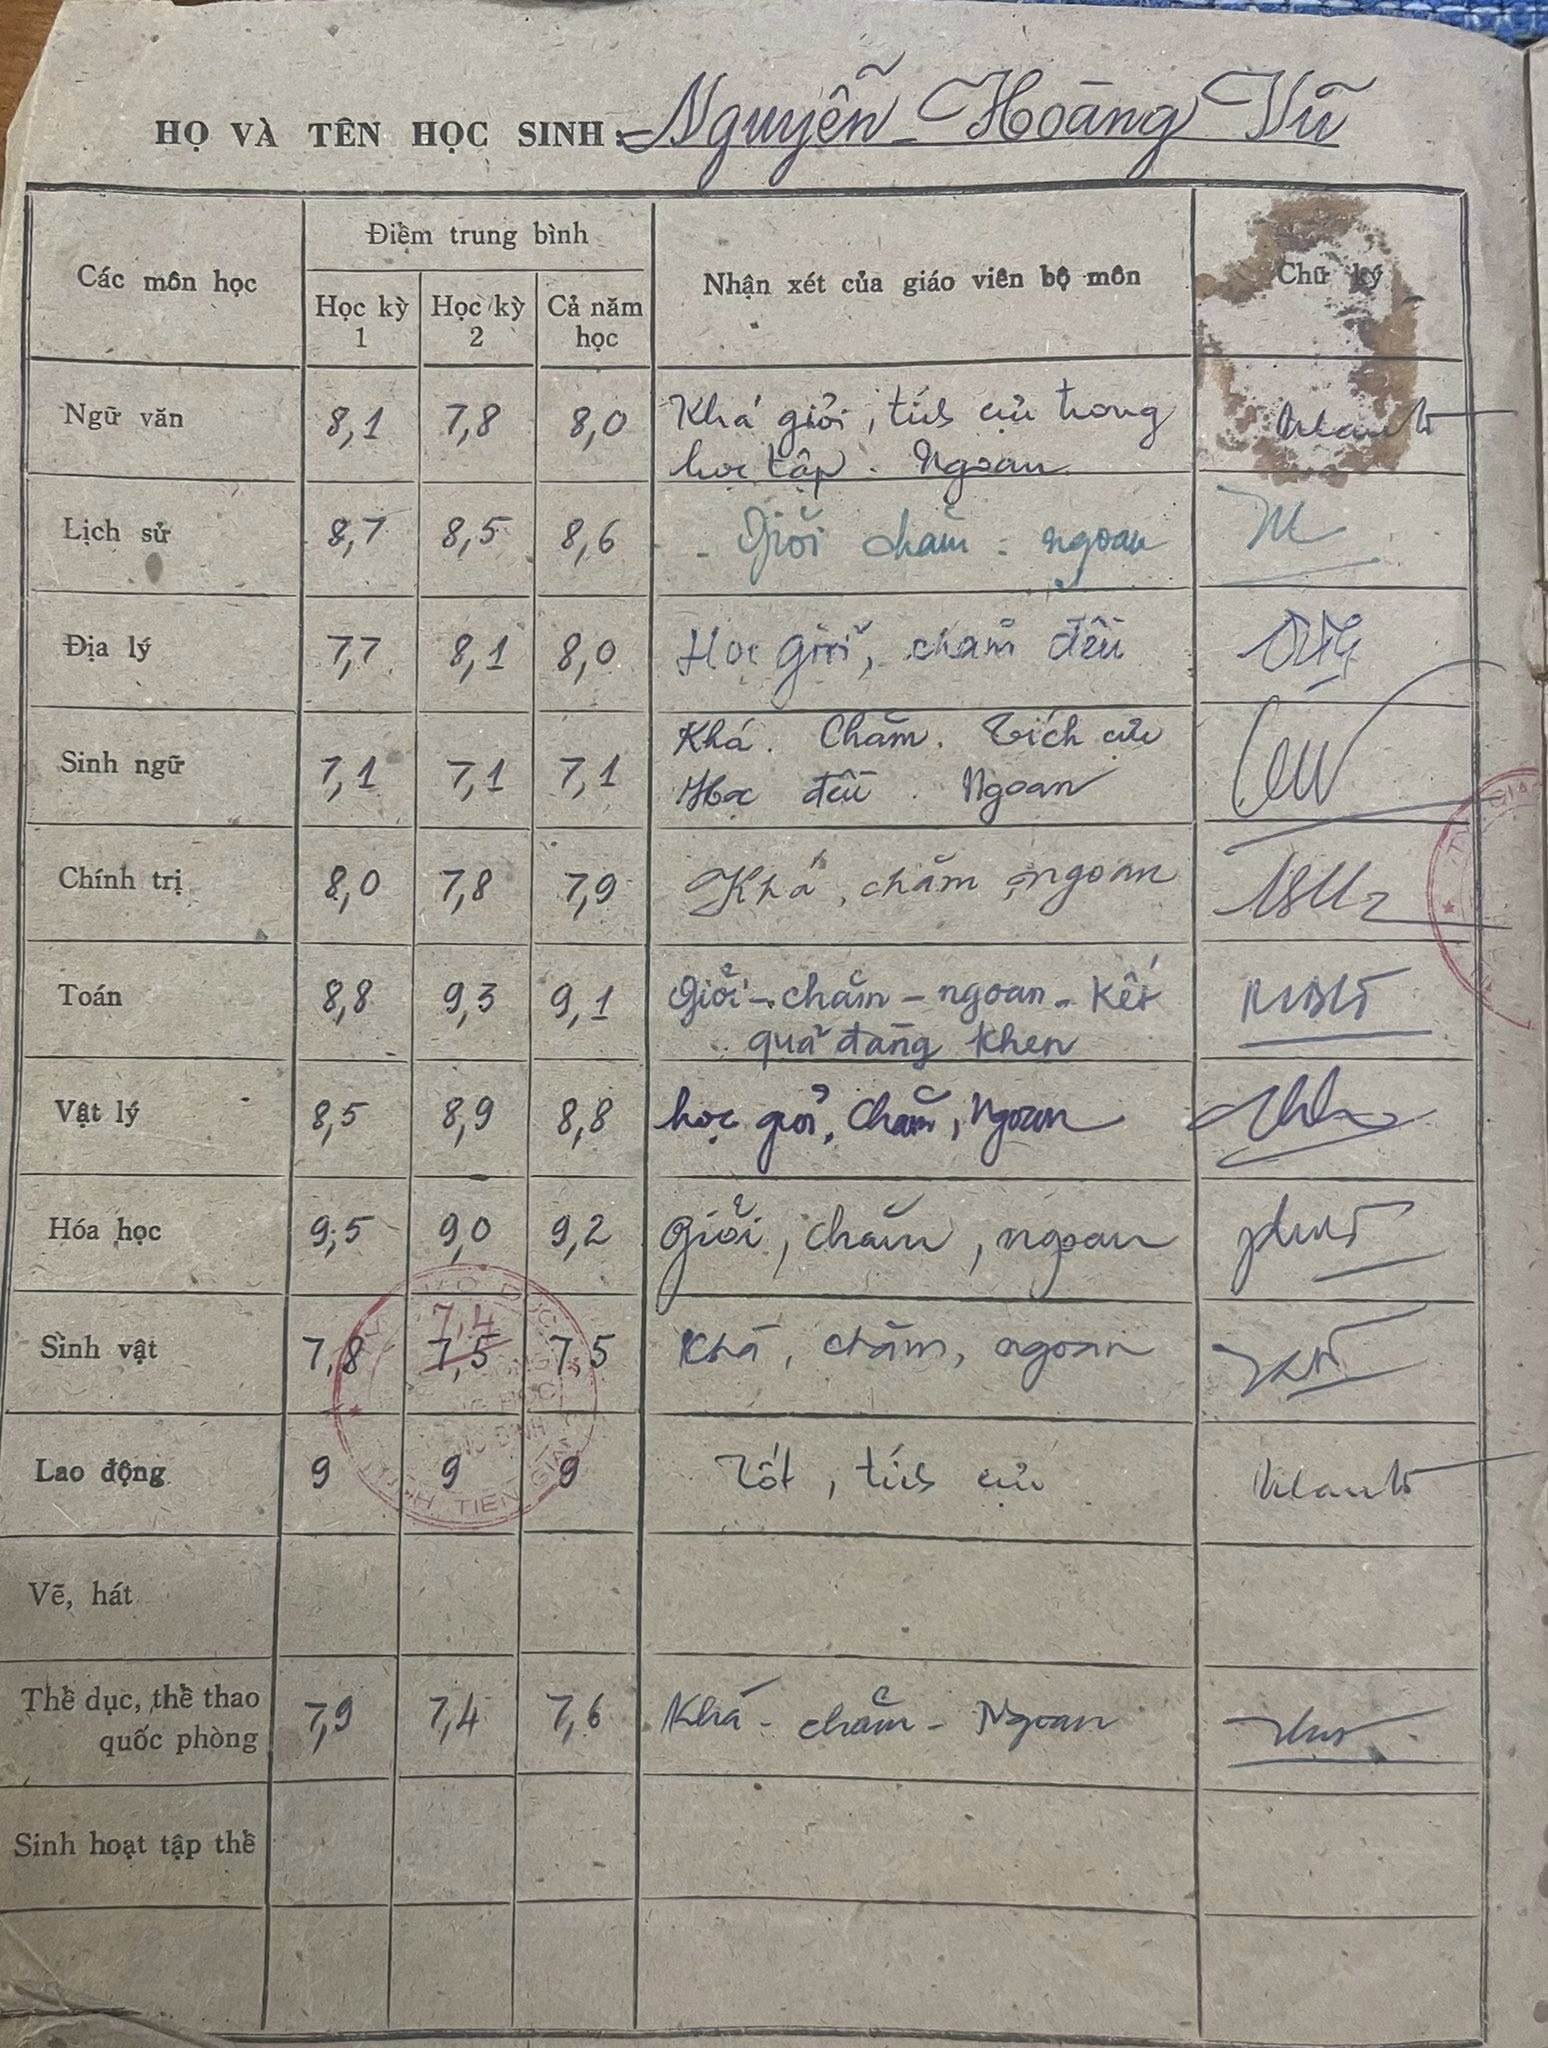 HỌ VÀ TÊN HỌC SINH: Nguyễn Hoàng Vũ
Các môn học
Điểm trung bình
Học kỳ 1
Học kỳ 2
Cả năm học
Nhận xét của giáo viên bộ môn
Chữ ký
Ngữ văn 8,1 7,8 8,0 Khá giỏi, tích cực trong
học tập. Ngoan
Lịch sử 8,7 8,5 8,6 - Giỏi chăm - ngoan
Địa lý 7,7 8,1 8,0 Học giỏi, chăm đều
Sinh ngữ 7,1 7,1 7,1 Khá. Chăm. Tích cực
Học đều. Ngoan
Chính trị 8,0 7,8 7,9 Khá, chăm, ngoan
Toán 8,8 9,3 9,1 Giỏi - chăm - ngoan - Kết
quả đáng khen
Vật lý 8,5 8,9 8,8 học giỏi, Chăm, Ngoan
Hóa học 9,5 9,0 9,2 Giỏi, chăm, ngoan
7,4
Sinh vật 7,8 7,5 7,5 Khá, chăm, ngoan
Lao động 9 9 9 Tốt, tích cực
TỈNH TIỀN GIANG
Vẽ, hát
Thể dục, thể thao
quốc phòng 7,9 7,4 7,6 Khá - chăm - Ngoan
Sinh hoạt tập thể